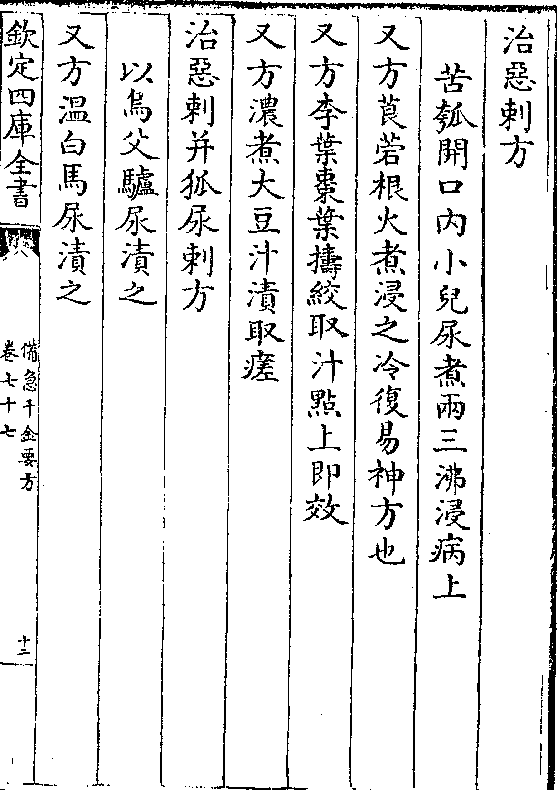 治惡刺方
苦瓠開口内小兒尿煮兩三沸浸病上
又方莨菪根火煮浸之冷復易神方也
又方李葉棗葉擣絞取汁點上即效
又方濃煮大豆汁漬取瘥
治惡刺并狐尿刺方
以烏父驢尿漬之
又方温白馬尿漬之
欽定四庫全書
備急千金要方
卷七十七
十二